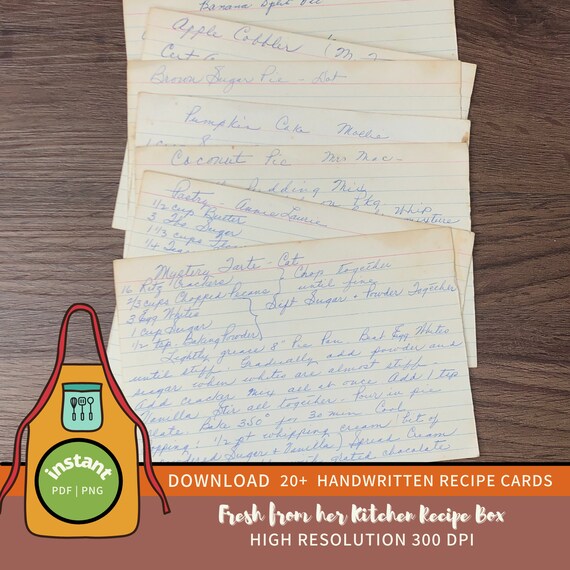 Banana Split Pie
Apple Cobbler
Cert
Brown Sugar Pie - Dot
Pumpkin Cake Mollie
Coconut Pie Mrs Mac-
Pudding Mix
pkg Whip
mixture
Pastry - Annie Laurie
1/2 cup Butter
3 Tbs Sugar
1 1/3 cups Flour
1/4 Teas
Mystery Tarte - Cat
16 Ritz Crackers } Chop together
2/3 cups Chopped Pecans until fine
3 Egg Whites Sift Sugar + Powder Together
1 cup Sugar
1/2 tsp. Baking Powder
Lightly grease 8" Pie Pan. Beat Egg Whites
until stiff. Gradually add powder and
sugar when whites are almost stiff.
Add cracker mix all at once. Add 1 tsp
Vanilla. Stir all together. Pour in pie
plate. Bake 350° for 30 min. Cool
Topping: 1/2 pt whipping cream (bit of
Powdered Sugar & Vanilla) Spread Cream
grated chocolate
instant
PDF | PNG
DOWNLOAD 20+ HANDWRITTEN RECIPE CARDS
Fresh from her Kitchen Recipe Box
HIGH RESOLUTION 300 DPI